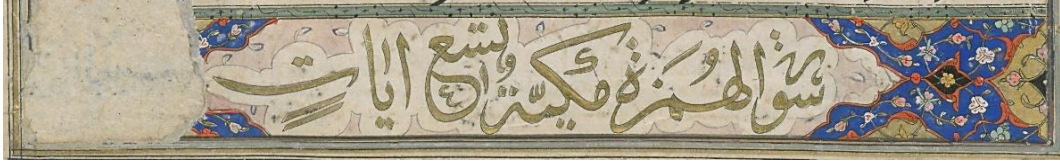 سورة الهُمَزة مكيّة وتسع ايَاتٍ